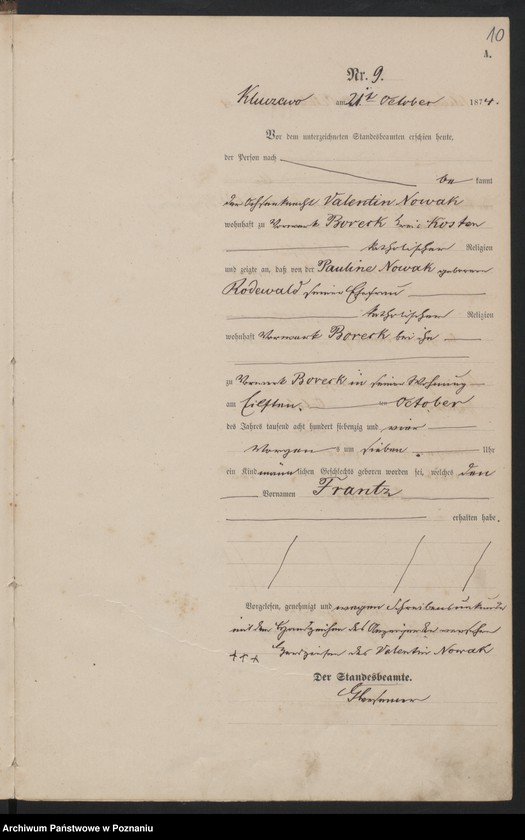 10
A.
Nr. 9.
Kluczewo am 21t October 1874.
Vor dem unterzeichneten Standesbeamten erschien heute,
der Person nach
be kannt
der Ochsenknecht Valentin Nowak
wohnhaft zu Vorwerk Boreck Kreis Kosten
katholischer Religion
und zeigte an, daß von der Pauline Nowak geborenen
Rodewald seiner Ehefrau
katholischer Religion
wohnhaft Vorwerk Boreck bei ihm
zu Vorwerk Boreck in seiner Wohnung
am Eilften ten October
des Jahres tausend acht hundert siebenzig und vier
Morgen s um sieben Uhr
ein Kind männlichen Geschlechts geboren worden sei, welches den
Vornamen Frantz
erhalten habe.
Vorgelesen, genehmigt und wegen Schreibensunkunde
mit dem Handzeichen des Anzeigenden versehen
+++ Handzeichen des Valentin Nowak
Der Standesbeamte.
Archiwum Państwowe w Poznaniu